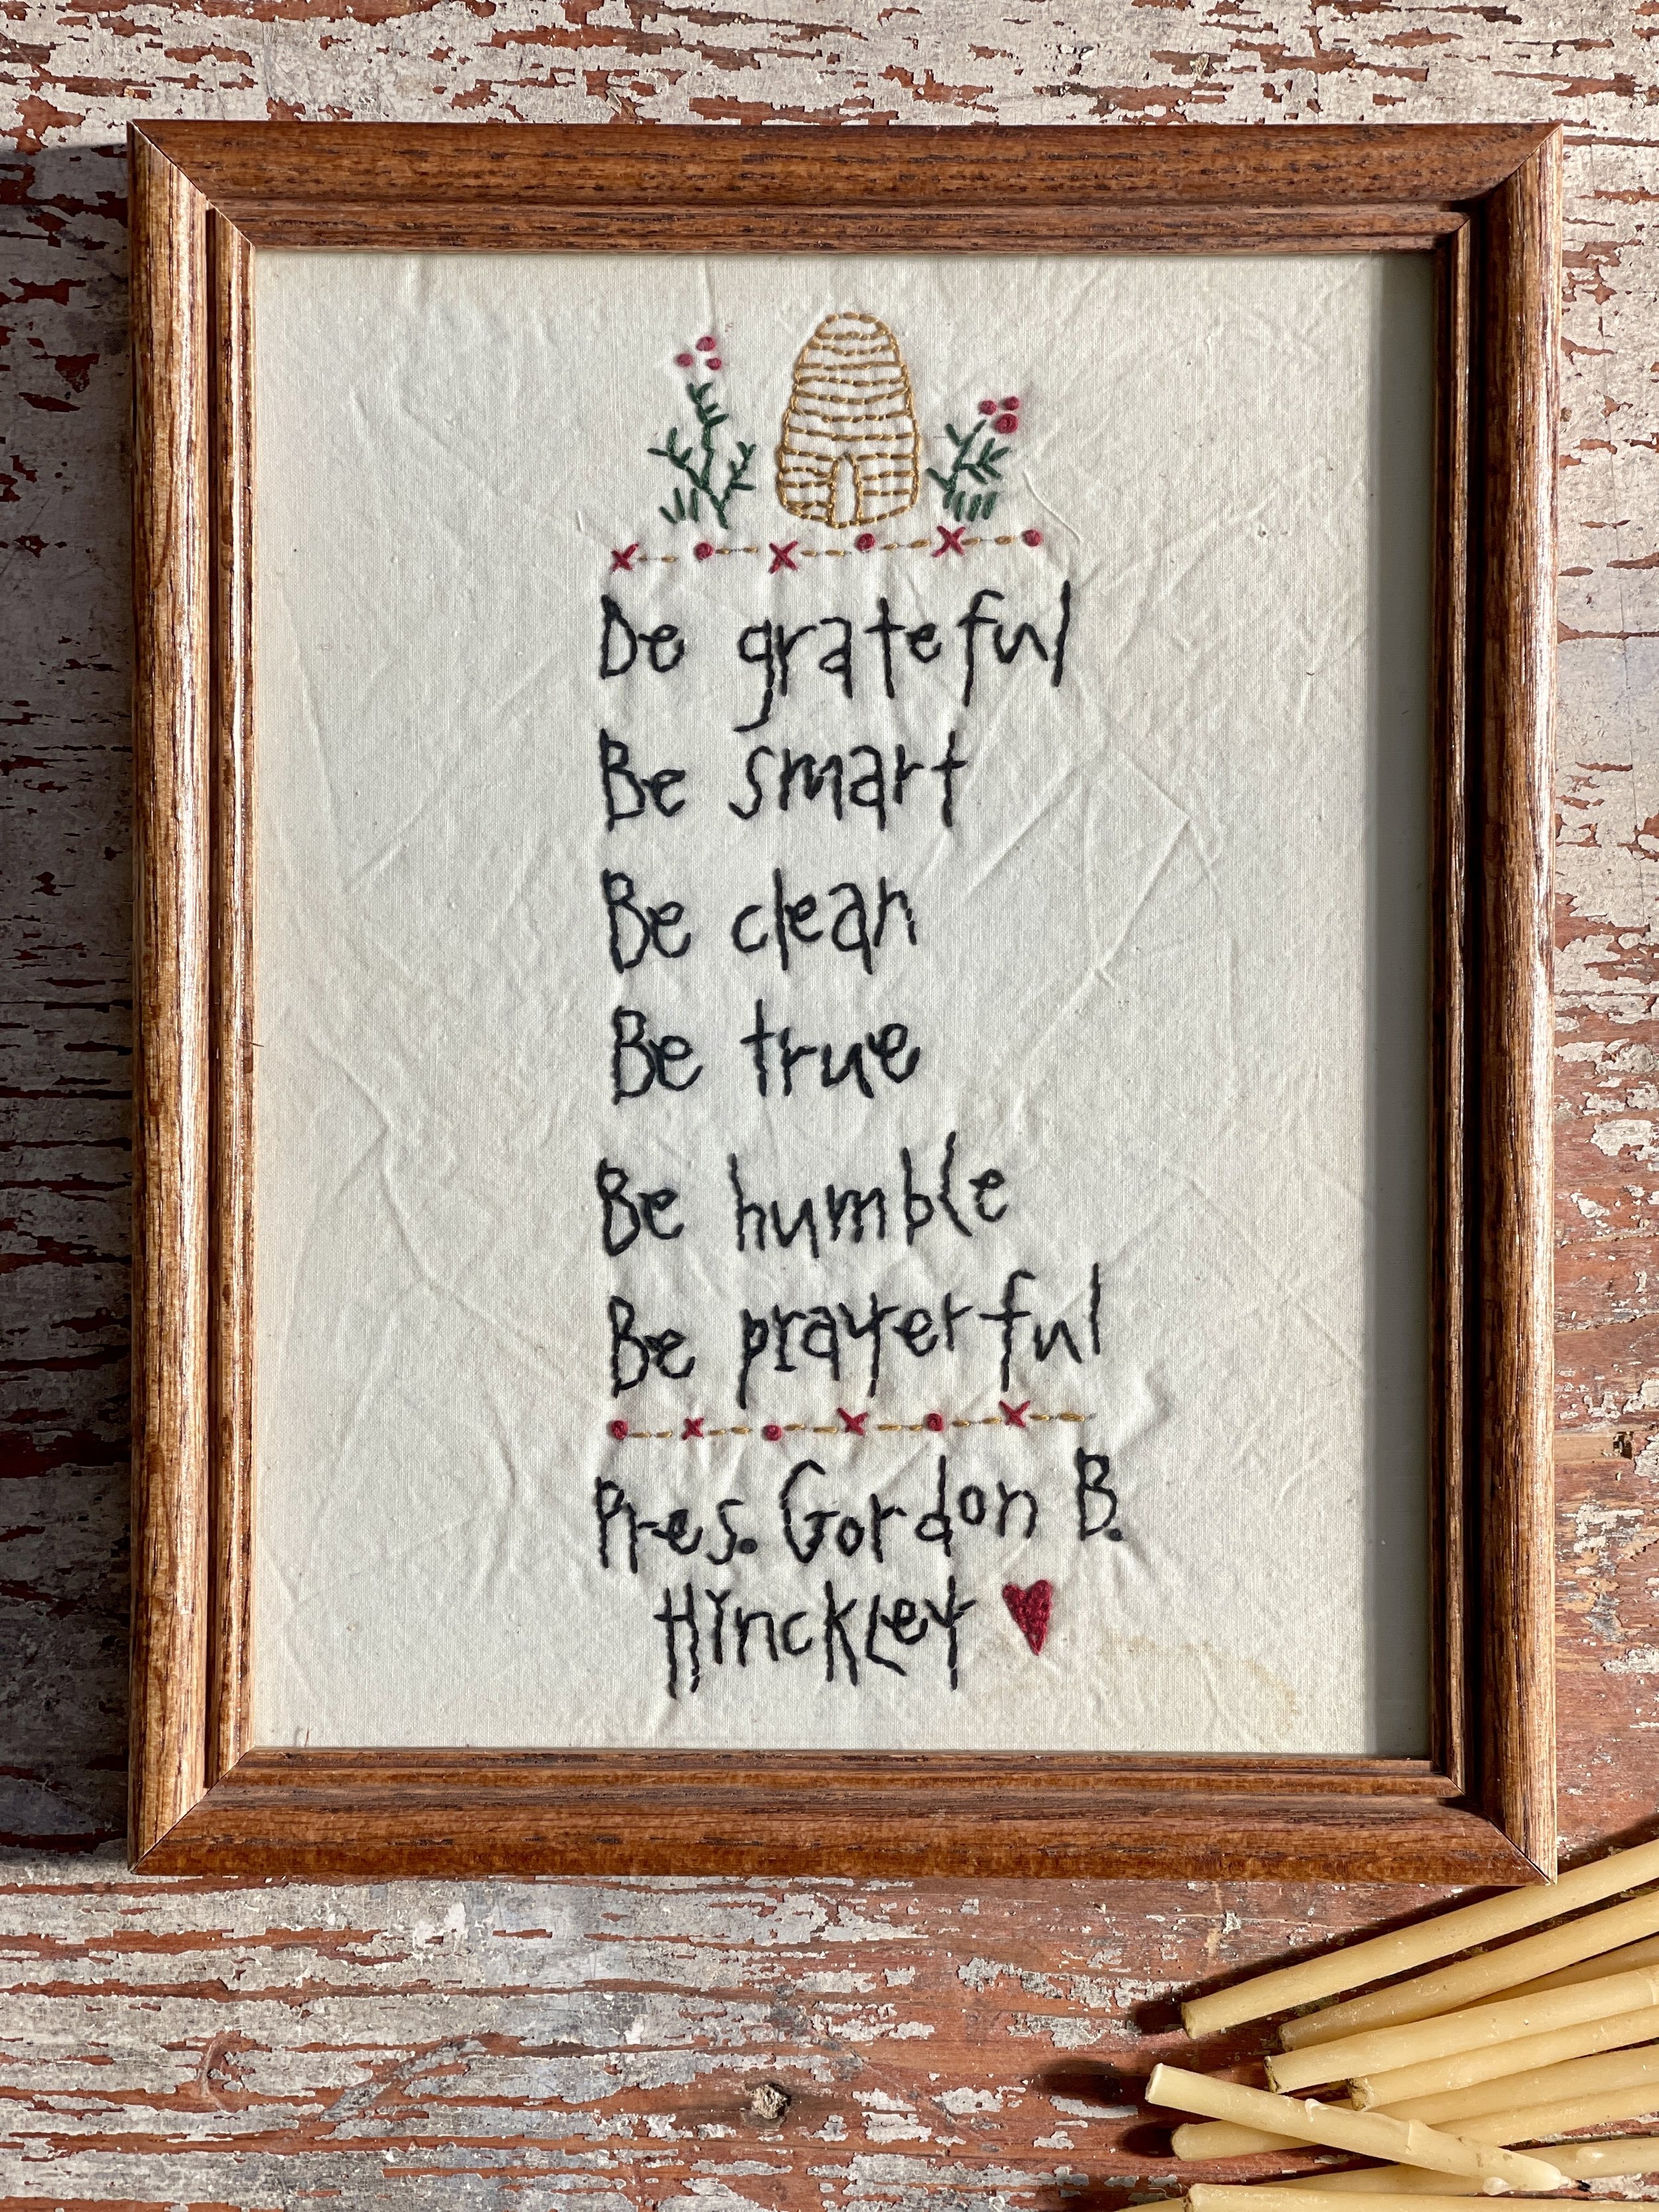 Be grateful
Be smart
Be clean
Be true
Be humble
Be prayerful
Pres. Gordon B.
Hinckley